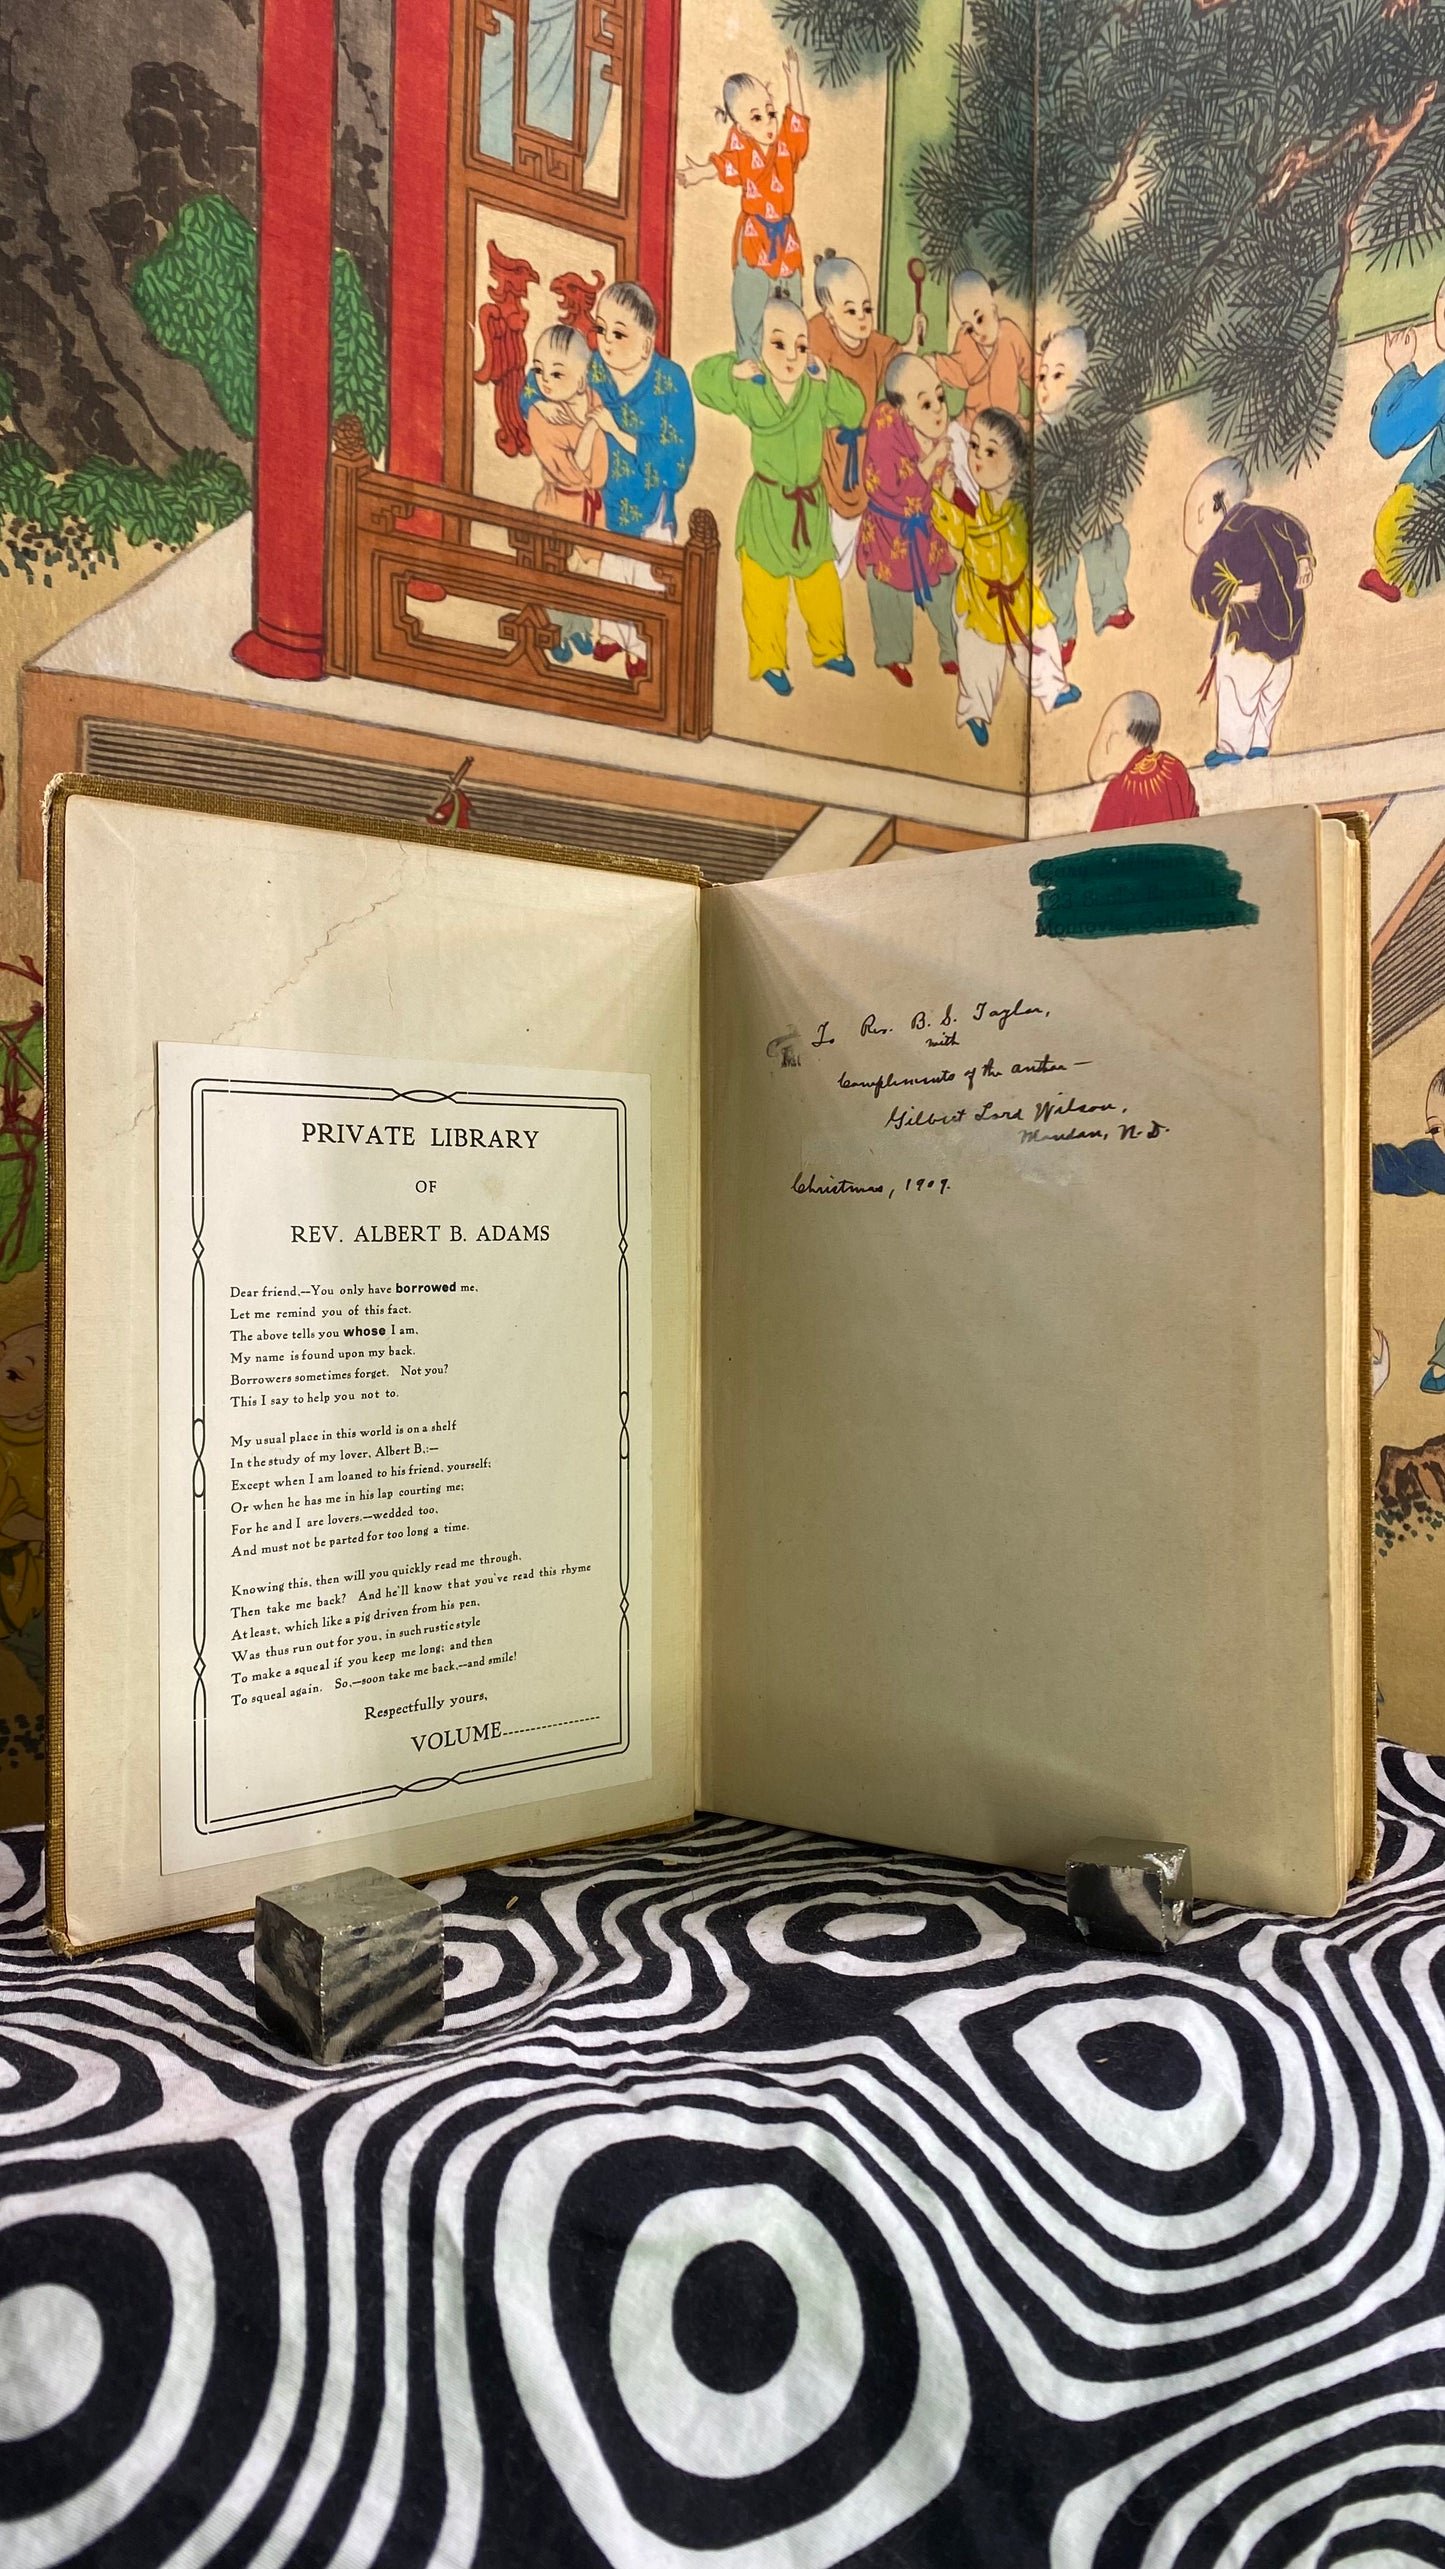 PRIVATE LIBRARY
OF
REV. ALBERT B. ADAMS
Dear friend,--You only have borrowed me,
Let me remind you of this fact.
The above tells you whose I am,
My name is found upon my back.
Borrowers sometimes forget. Not you?
This I say to help you not to.
My usual place in this world is on a shelf
In the study of my lover, Albert B.:—
Except when I am loaned to his friend, yourself;
Or when he has me in his lap courting me;
For he and I are lovers,—wedded too,
And must not be parted for too long a time.
Knowing this, then will you quickly read me through,
Then take me back? And he'll know that you've read this rhyme
At least, which like a pig driven from his pen,
Was thus run out for you, in such rustic style
To make a squeal if you keep me long; and then
To squeal again. So,—soon take me back,—and smile!
Respectfully yours,
VOLUME
Monrovia, California
To Rev. B. S. Taylor,
with
Compliments of the author—
Gilbert Lord Wilson,
Mandan, N.D.
Christmas, 1909.